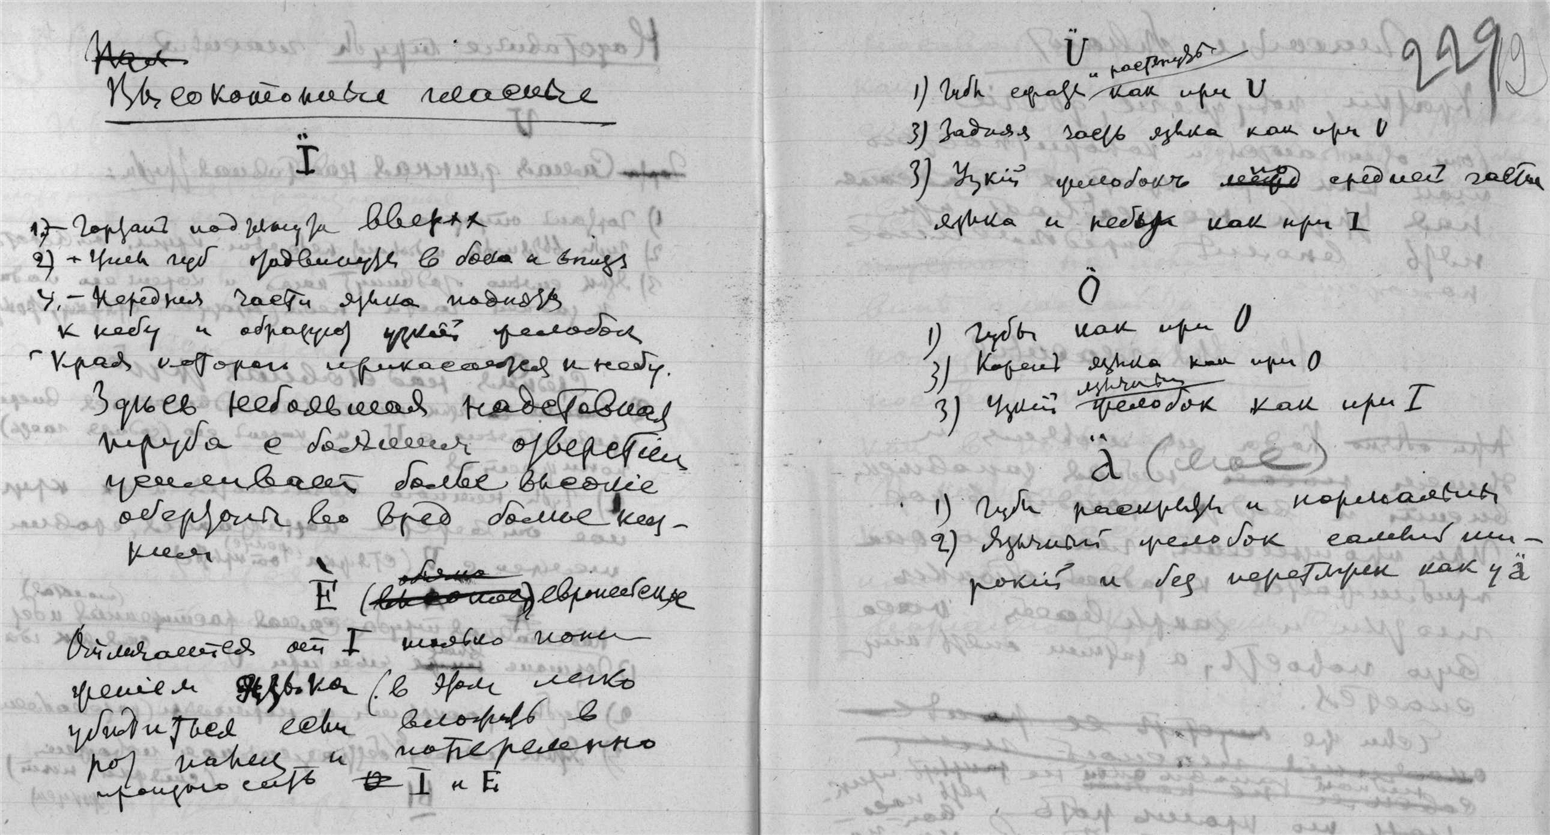 Высокотонные гласные
Ï
1) – Гортань подтянута вверх
2) – Углы губ раздвинуты в бока и
4. – Передняя часть языка поднята
к небу и образует узкий желобок
края которого прикасаются к небу.
Здесь небольшая надставная
труба с большим отверстием
усиливает более высокие
обертоны во вред более низ-
ким
È (высокое) европейское
Отличается от I только пони-
жением языка (в этом легко
убедиться если вложить в
рот палец и попеременно
произносить I и E
229
Ü
1) Губы сжаты и растянуты как при U
3) Задняя часть языка как при U
3) Узкий желобокъ средней части
языка и неба как при I
Ö
1) Губы как при O
3) Корень языка как при O
3) Узкий язычный желобок как при I
Ä
1) Губы раскрыты и нормальны
2) Язычный желобок самый ши-
рокий и без перетяжек как у ä